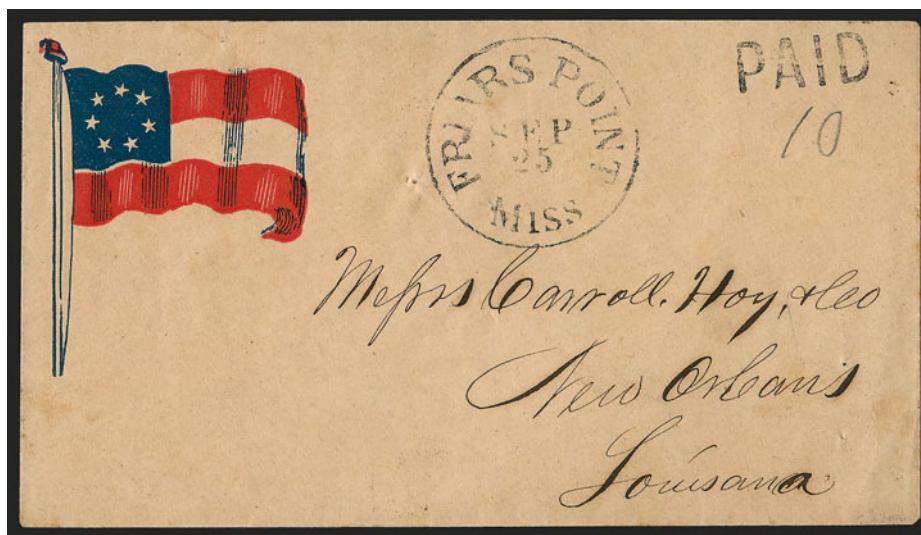 FRIARS POINT
SEP
25
MISS
PAID
10
Messrs Carroll, Hoy, & Co
New Orleans
Louisana